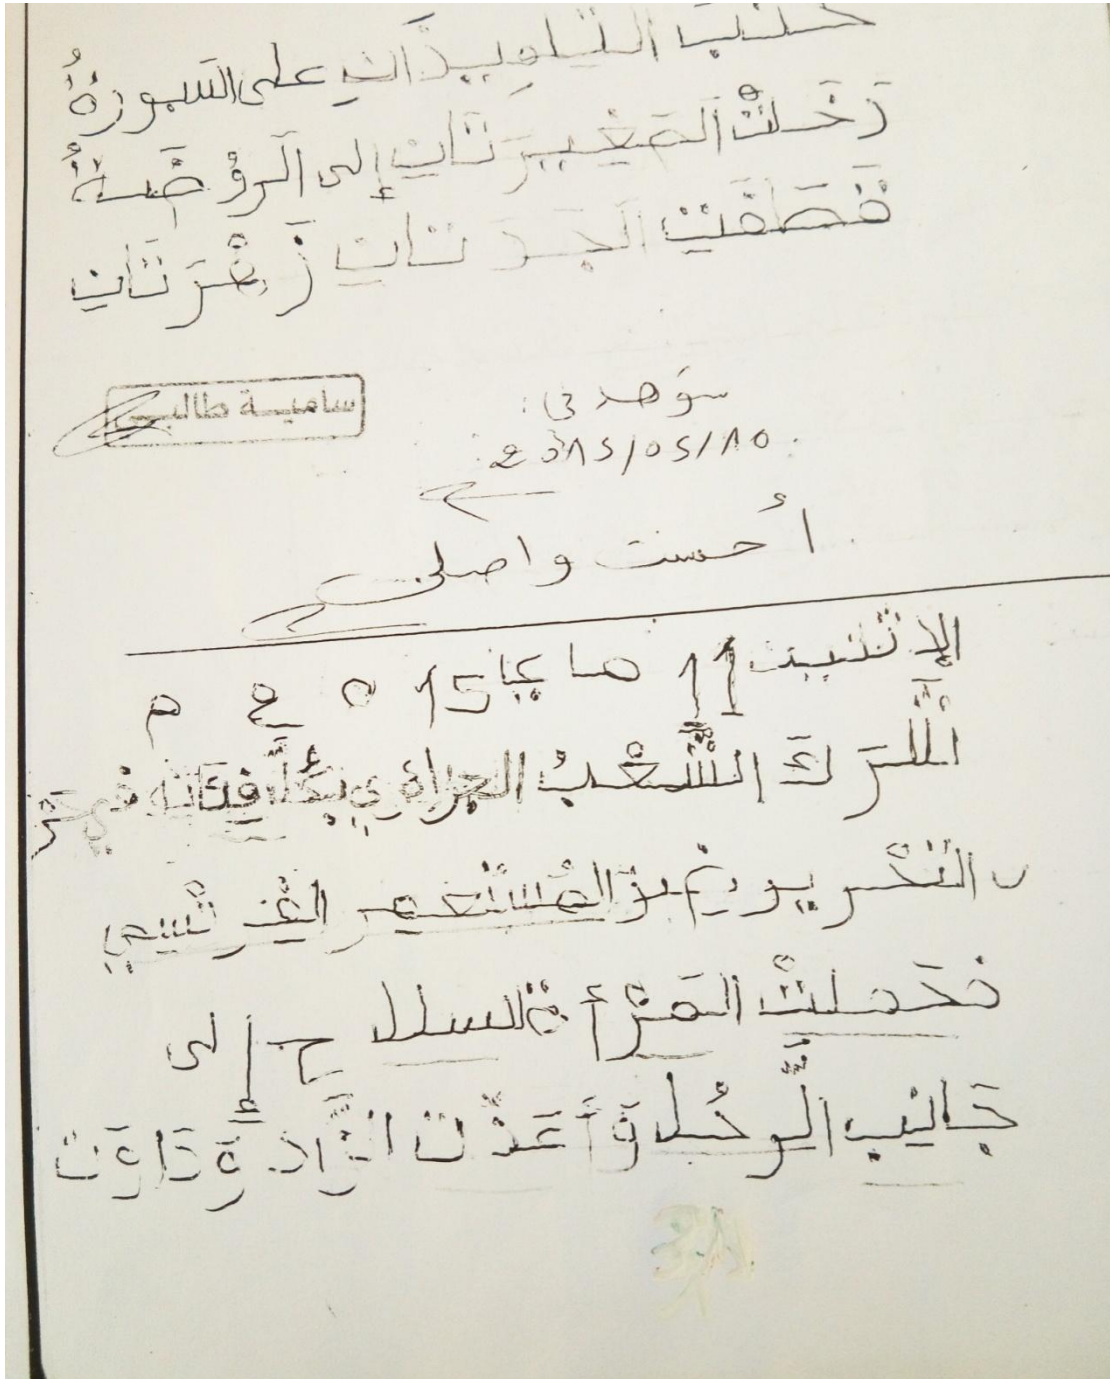 كتبت التلميذتان على السبورةُ
دَخَلتْ الصَغِيرَتَانِ إلى الرَوْضَةُ
فقطفت البنتان زَهْرَتَانِ
سامية طالبي
سوهد في:
2015/05/10
أحسنت واصلي
الإثنين 11 ماي 2015 م
الشَّعْبُ الجزائري
التحرير المُسْتَعمِر الفرنْسِي
فحَملتْ المَرْأة السلاح إلى
جَانِب الرَّجُل وَأَعَدَّت الزَّاد وَدَاوَت